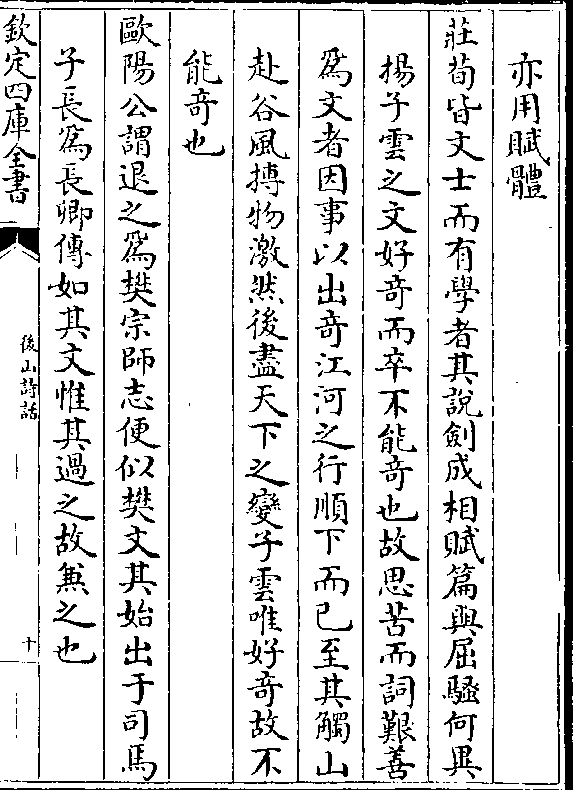 亦用賦體
莊荀皆文士而有學者其說劍成相賦篇與屈騷何異
揚子雲之文好奇而卒不能奇也故思苦而詞艱善
為文者因事以出奇江河之行順下而已至其觸山
赴谷風搏物激然後盡天下之變子雲唯好奇故不
能奇也
歐陽公謂退之為樊宗師志便似樊文其始出于司馬
子長為長卿傳如其文惟其過之故兼之也
欽定四庫全書
後山詩話
十